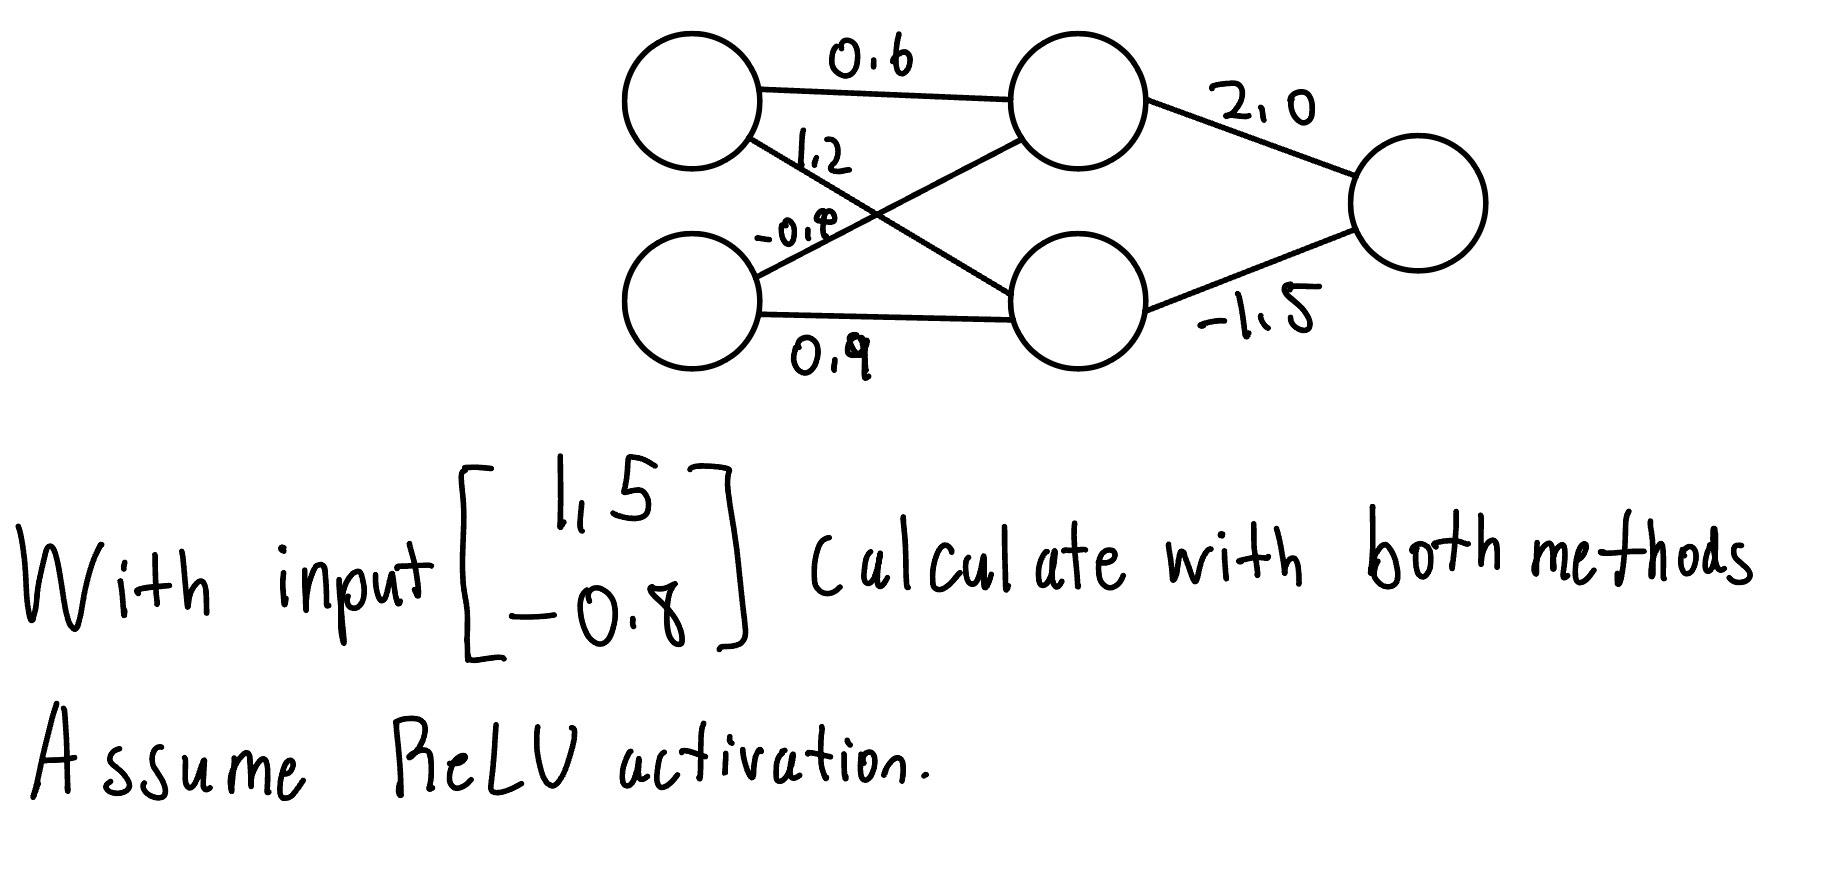 0.6
2.0
1.2
0.9
-1.5
With input [1.5 -0.8] Calculate with both methods
Assume ReLU activation.